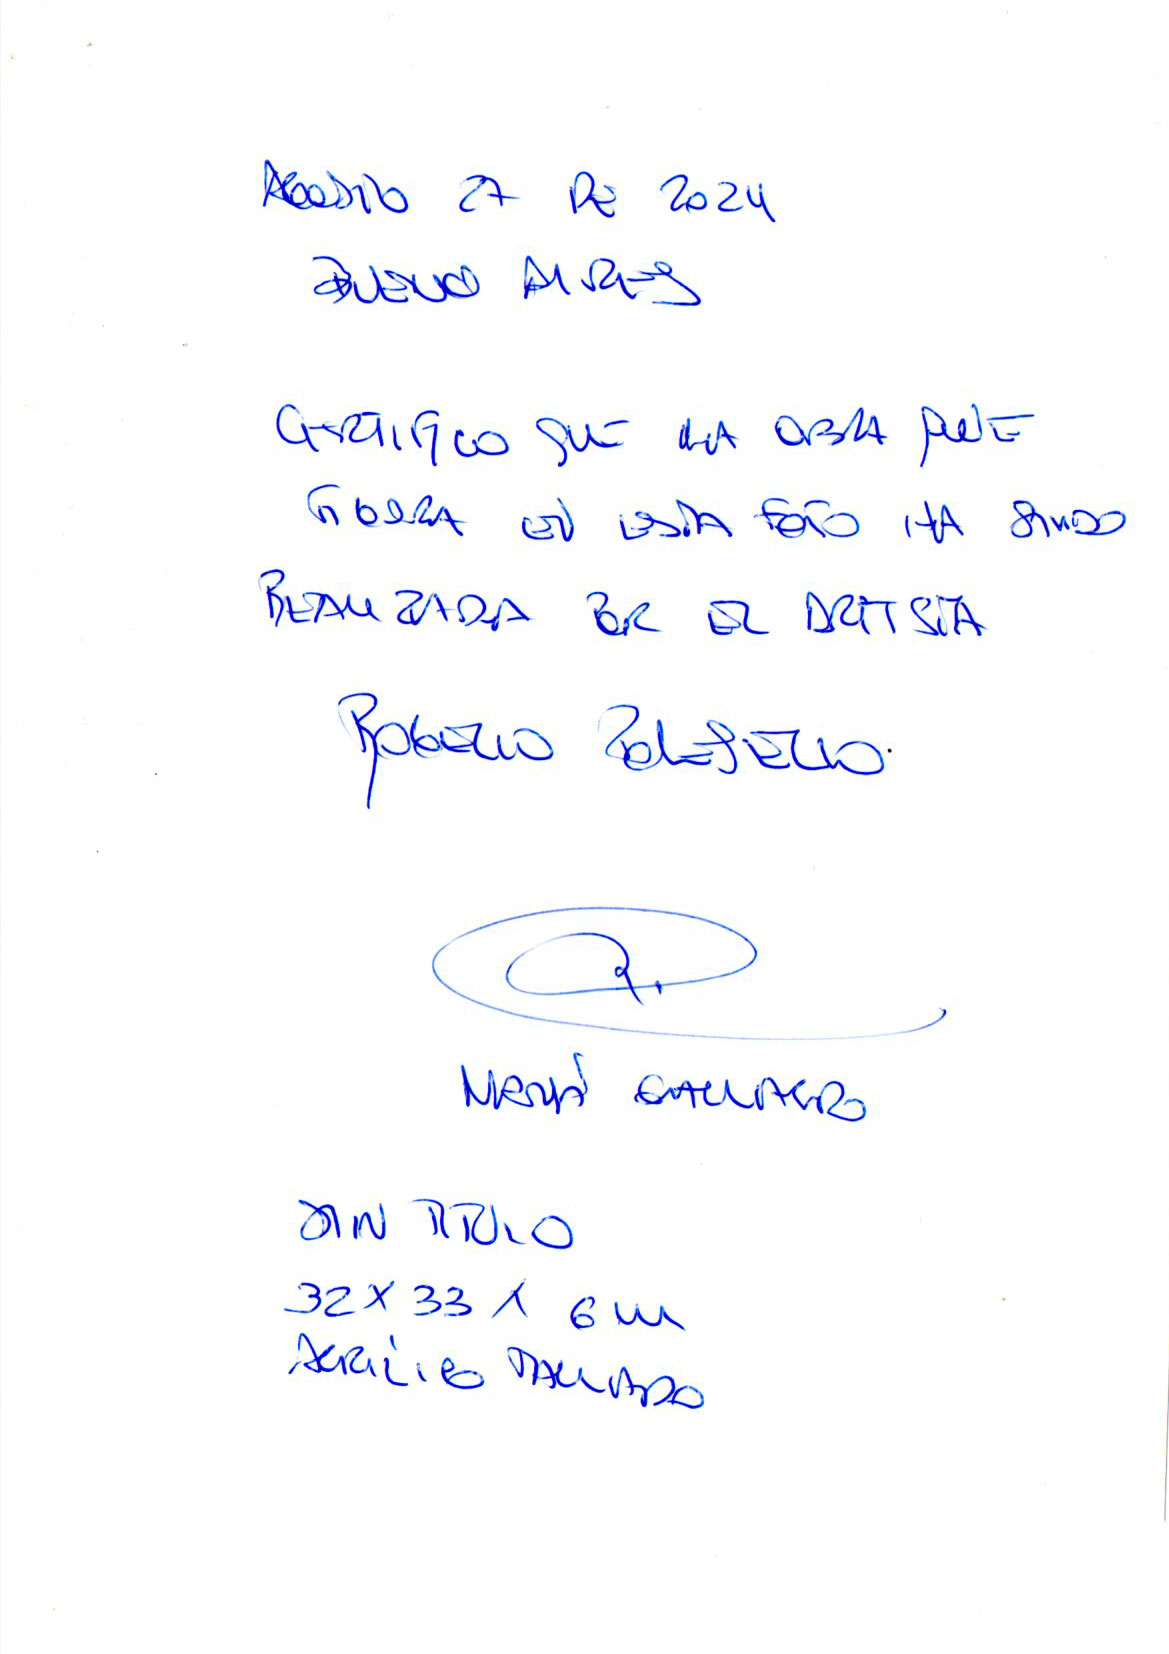 AGOSTO 27 DE 2024
BUENO AIRES
CERTIFICO QUE LA OBRA QUE
FIGURA EN ESTA FOTO HA SIDO
REALIZADA POR EL ARTISTA
ROGELIO POLESELLO.
SIN TITULO
32 X 33 X 6 cm
ACRÍLICO TALLADO